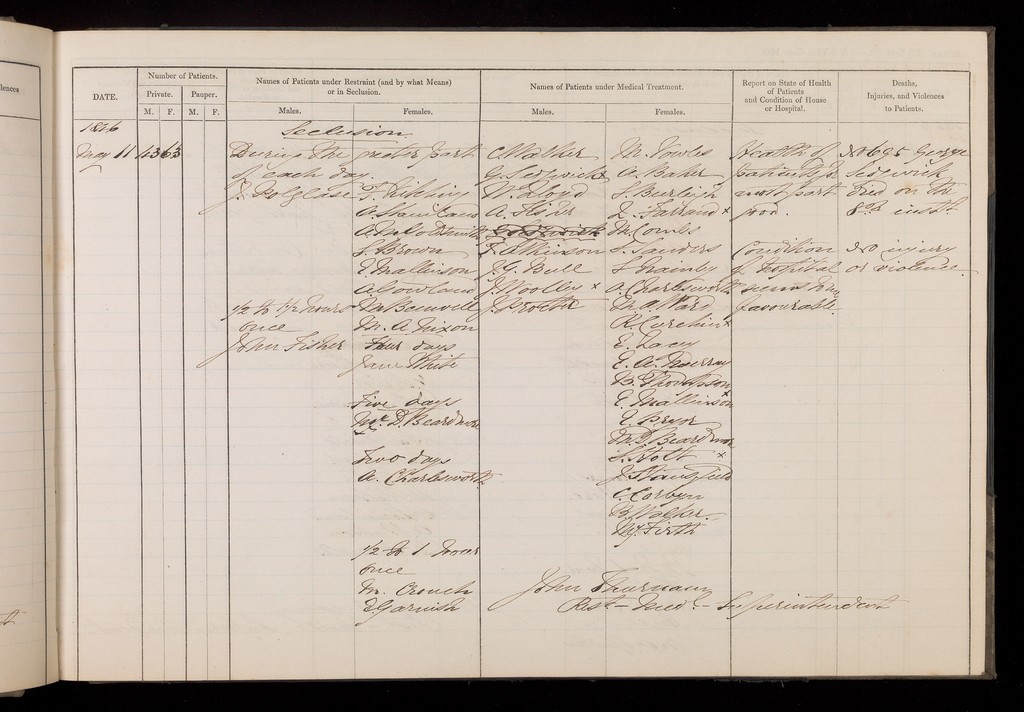 lences
DATE.
Number of Patients.
Private. Pauper.
M. F. M. F.
Names of Patients under Restraint (and by what Means)
or in Seclusion.
Males. Females.
Names of Patients under Medical Treatment.
Males. Females.
Report on State of Health
of Patients
and Condition of House
or Hospital.
Deaths,
Injuries, and Violences
to Patients.
1846
May 11 43 63
Seclusion
During the greater part
of each day.
J. Polglase
1/2 to 1 1/2 hours
once
John Fisher
A. Staniland
S. Brown
E. Mallinson
A. Gowland
M. A. Nixon
Four days
Jane White
Five days
D. Beardmore
Two days
A. Charlesworth
1/2 to 1 hour
once
M. Crouch
Garnish
C. Walker
G. Sedgwick
W. Lloyd
Atkinson
J. G. Bull
J. Woolley x
M. Vowles
A. Baker
S. Burleigh
Farrand x
M. Combs
S. Sanders
S. Nainby
A. Charlesworth
M. A. Ward
E. Lacey
E. A. Murray
B. Thompson
E. Mallinson x
M. D. Beardmore
S. Holt x
J. Stansfield
C. Corbyn
B. Walker
Firth
Health of
patients for
most part
good.
Condition
of hospital
seems to me
favourable.
No 695 George
Sedgwick
died on the
8th inst.
No injury
or violence.
John Thurnam
Rest- Med.- Superintendent